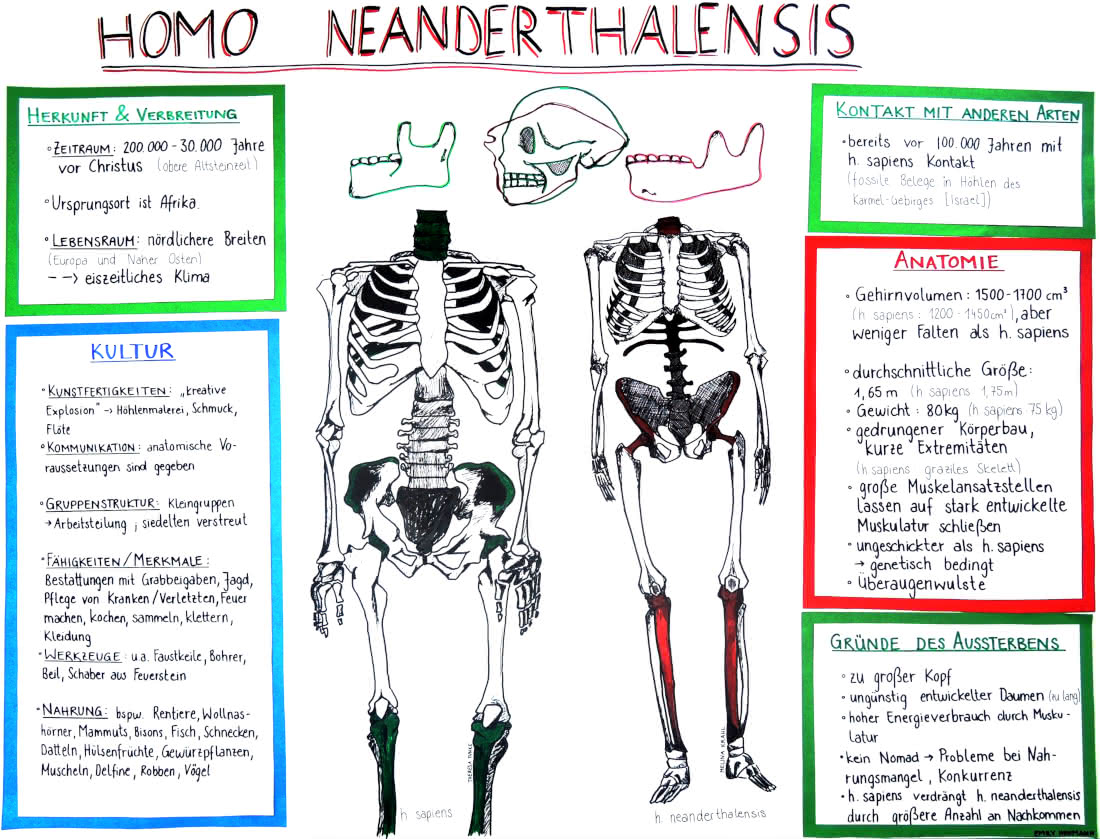 HOMO NEANDERTHALENSIS
HERKUNFT & VERBREITUNG
° ZEITRAUM: 200.000 - 30.000 Jahre
vor Christus (obere Altsteinzeit)
° Ursprungsort ist Afrika.
° LEBENSRAUM: nördlichere Breiten
(Europa und Naher Osten)
--> eiszeitliches Klima
KULTUR
° KUNSTFERTIGKEITEN: „kreative
Explosion" → Höhlenmalerei, Schmuck,
Flöte
° KOMMUNIKATION: anatomische Vo-
raussetzungen sind gegeben
° GRUPPENSTRUKTUR: Kleingruppen
→ Arbeitsteilung ; siedelten verstreut
° FÄHIGKEITEN / MERKMALE:
Bestattungen mit Grabbeigaben, Jagd,
Pflege von Kranken/Verletzten, Feuer
machen, kochen, sammeln, klettern,
Kleidung
° WERKZEUGE: u.a. Faustkeile, Bohrer,
Beil, Schaber aus Feuerstein
° NAHRUNG: bspw. Rentiere, Wollnas-
hörner, Mammuts, Bisons, Fisch, Schnecken,
Datteln, Hülsenfrüchte, Gewürzpflanzen,
Muscheln, Delfine, Robben, Vögel
h sapiens
h neanderthalensis
THERESA
MELINA KRAHL
KONTAKT MIT ANDEREN ARTEN
° bereits vor 100.000 Jahren mit
h. sapiens Kontakt
(fossile Belege in Höhlen des
Karmel-Gebirges [Israel])
ANATOMIE
° Gehirnvolumen: 1500 - 1700 cm³
(h sapiens: 1200 - 1450cm³), aber
weniger Falten als h. sapiens
° durchschnittliche Größe:
1,65 m (h sapiens 1,75m)
° Gewicht: 80kg (h sapiens 75 kg)
° gedrungener Körperbau,
kurze Extremitäten
(h sapiens graziles Skelett)
° große Muskelansatzstellen
lassen auf stark entwickelte
Muskulatur schließen
° ungeschickter als h. sapiens
→ genetisch bedingt
° Überaugenwulste
GRÜNDE DES AUSSTERBENS
° zu großer Kopf
° ungünstig entwickelter Daumen (zu lang)
° hoher Energieverbrauch durch Musku-
latur
° kein Nomad → Probleme bei Nah-
rungsmangel, Konkurrenz
° h. sapiens verdrängt h. neanderthalensis
durch größere Anzahl an Nachkommen
EMILY